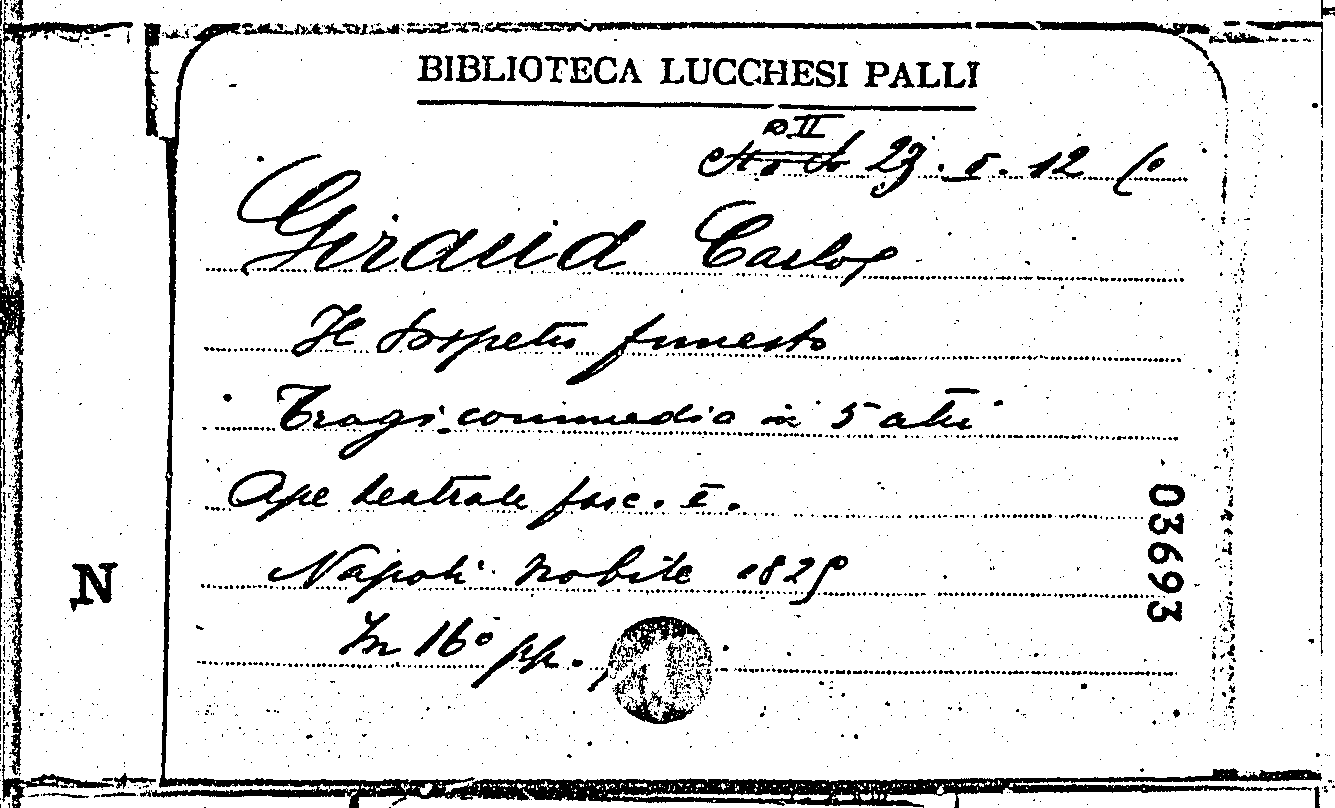 BIBLIOTECA LUCCHESI PALLI
II
23. I. 12 (o
Giraud Carlo
Il Sospetto funesto
Tragi-commedia in 5 atti
Ape teatrale fasc. I.
Napoli Nobile 1829
In 16° pp.
03693
N